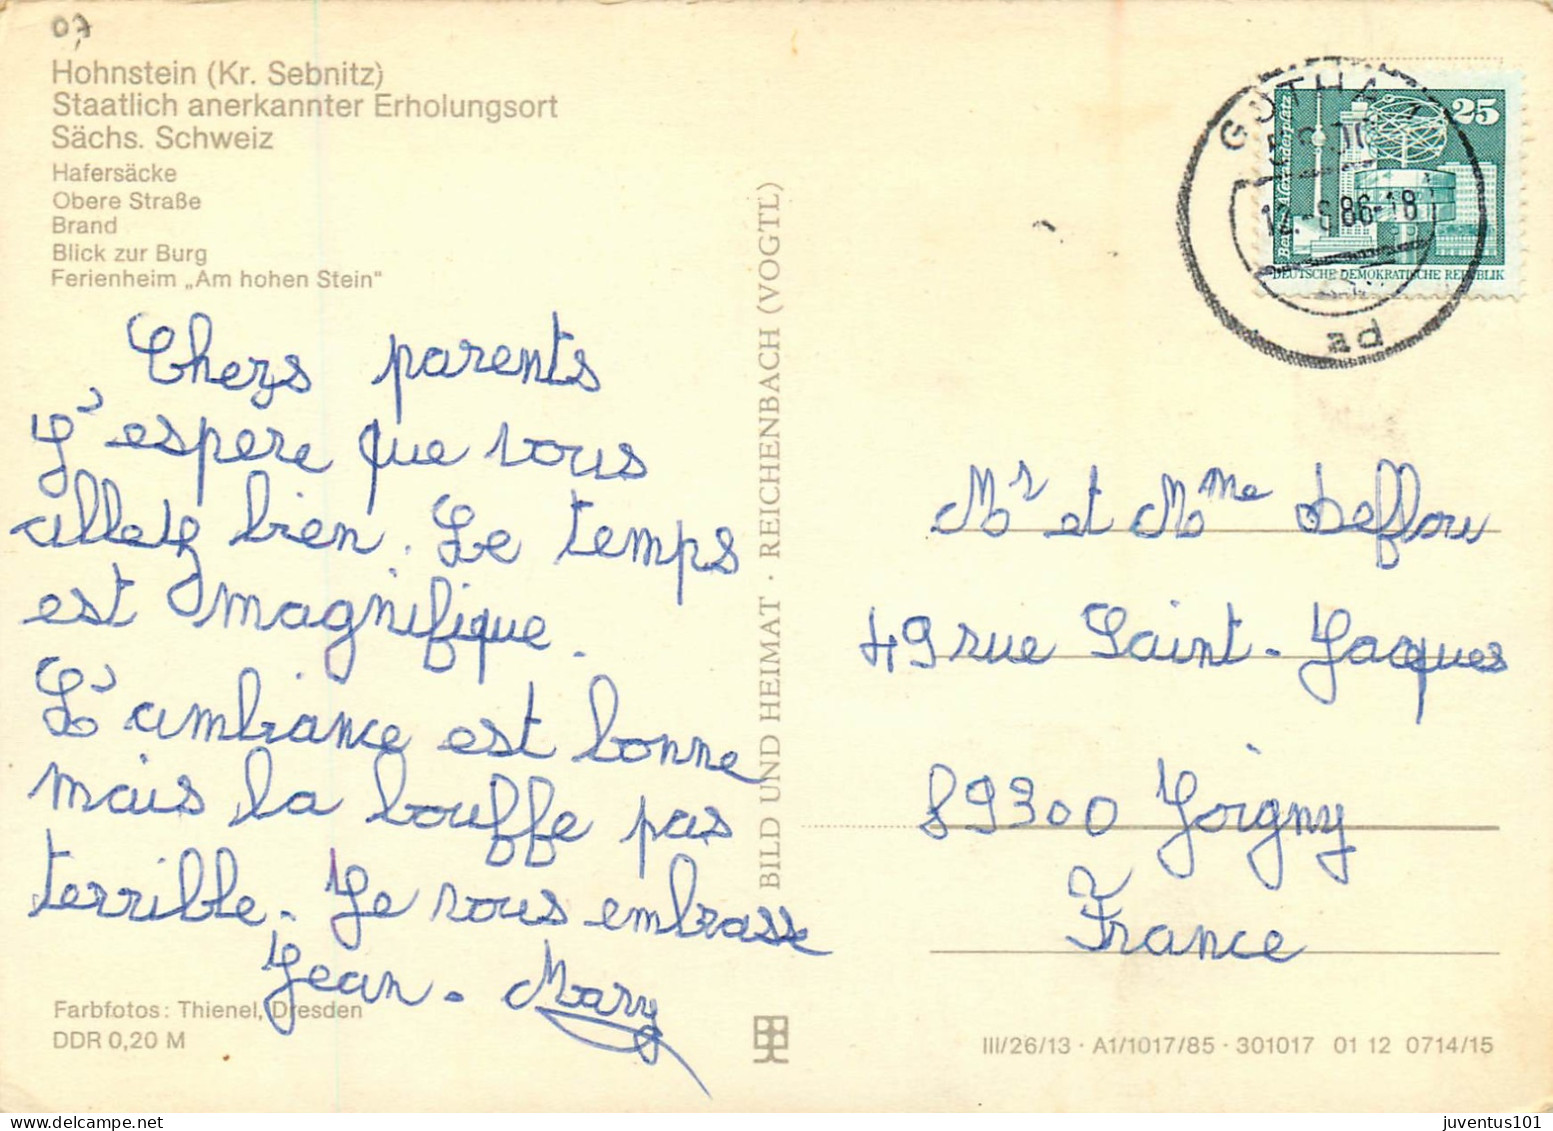 07
Hohnstein (Kr. Sebnitz)
Staatlich anerkannter Erholungsort
Sächs. Schweiz
Hafersäcke
Obere Straße
Brand
Blick zur Burg
Ferienheim „Am hohen Stein“
Chers parents
J'espere que vous
allez bien. Le temps
est magnifique.
L'ambiance est bonne
mais la bouffe pas
terrible. Je vous embrasse
Jean-Mary
Farbfotos: Thienel, Dresden
DDR 0,20 M
BILD UND HEIMAT · REICHENBACH (VOGTL)
GOTHA 1
5800
12.-6.86-18
ad
25
Berlin, Alexanderplatz
DEUTSCHE DEMOKRATISCHE REPUBLIK
Mr et Mme Defflou
49 rue Saint-Jacques
89300 Joigny
France
III/26/13 · A1/1017/85 · 301017 01 12 0714/15
juventus101